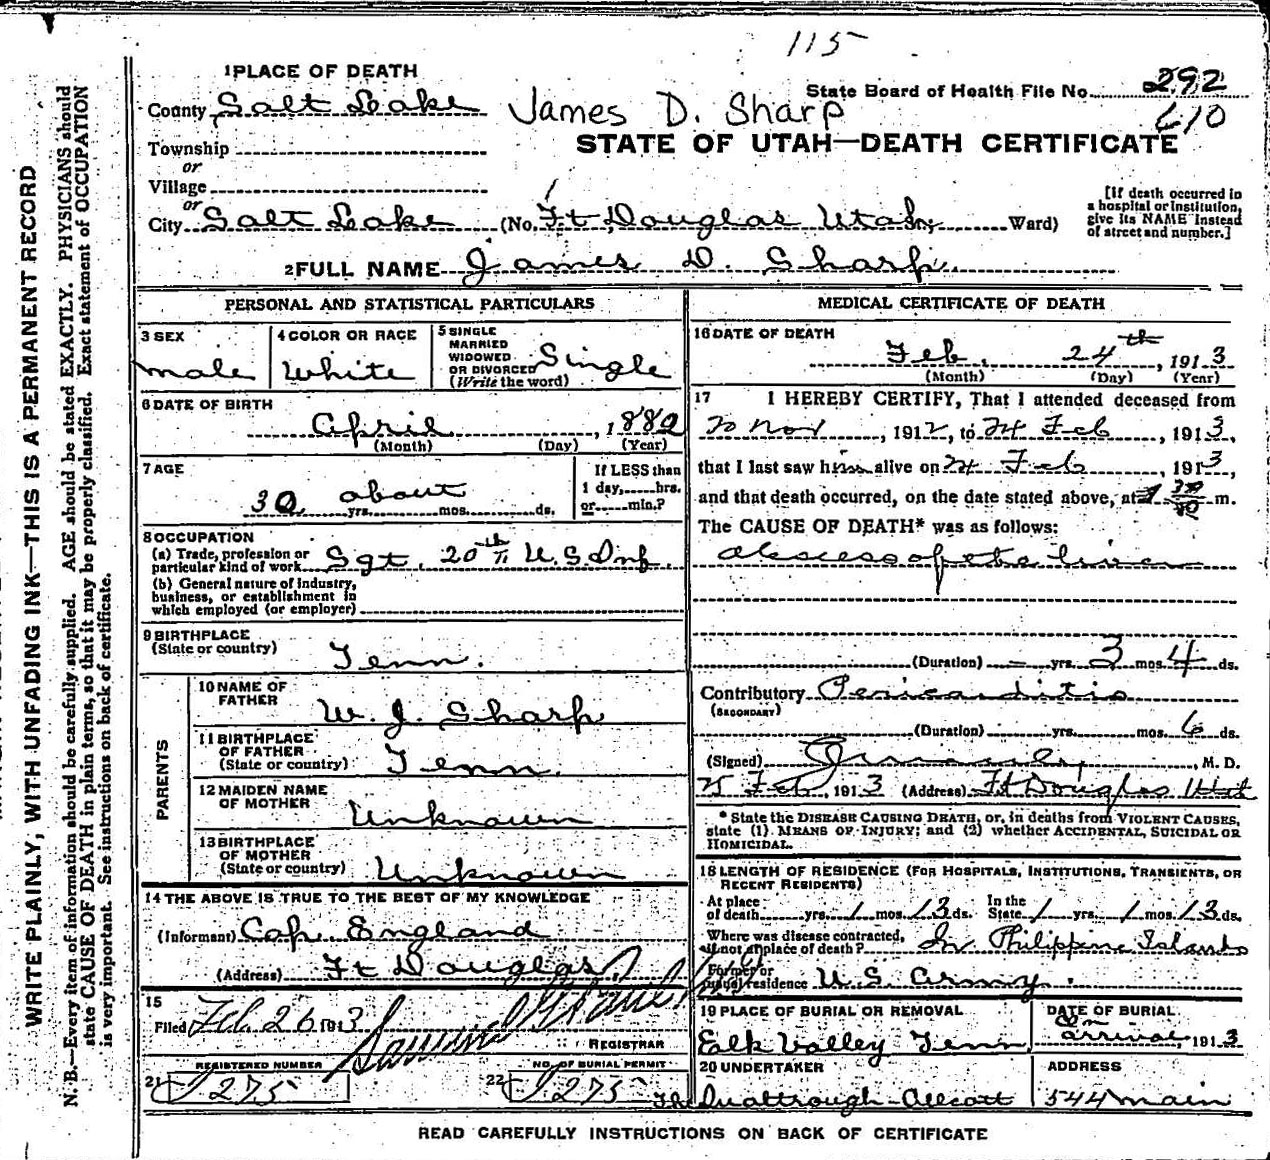 115
1 PLACE OF DEATH
State Board of Health File No. 292
County Salt Lake James D. Sharp 610
Township
STATE OF UTAH—DEATH CERTIFICATE
or
Village
or
City Salt Lake (No. Ft Douglas Utah Ward)
[If death occurred in
a hospital or institution,
give its NAME instead
of street and number.]
2 FULL NAME James D. Sharp.
PERSONAL AND STATISTICAL PARTICULARS
3 SEX
male
4 COLOR OR RACE
White
5 SINGLE
MARRIED
WIDOWED
OR DIVORCED
(Write the word)
Single
6 DATE OF BIRTH
April, 1882
(Month) (Day) (Year)
7 AGE
about
30 yrs. mos. ds.
If LESS than
1 day, hrs.
or min.?
8 OCCUPATION
(a) Trade, profession or
particular kind of work Sgt. 20th U.S. Inf.
(b) General nature of industry,
business, or establishment in
which employed (or employer)
9 BIRTHPLACE
(State or country)
Tenn.
PARENTS
10 NAME OF
FATHER
W. J. Sharp
11 BIRTHPLACE
OF FATHER
(State or country)
Tenn.
12 MAIDEN NAME
OF MOTHER
Unknown
13 BIRTHPLACE
OF MOTHER
(State or country)
Unknown
14 THE ABOVE IS TRUE TO THE BEST OF MY KNOWLEDGE
(Informant) Cap. England
(Address) Ft Douglas
15
Filed Feb. 26 1913
REGISTRAR
REGISTERED NUMBER
21 J 275
NO. OF BURIAL PERMIT
22 J 275
MEDICAL CERTIFICATE OF DEATH
16 DATE OF DEATH
Feb. 24th, 1913
(Month) (Day) (Year)
17 I HEREBY CERTIFY, That I attended deceased from
20 Nov, 1912, to 24 Feb, 1913,
that I last saw him alive on 24 Feb, 1913,
and that death occurred, on the date stated above, at m.
The CAUSE OF DEATH* was as follows:
abscess of the liver
(Duration) — yrs. 3 mos. 4 ds.
Contributory Pericarditis
(SECONDARY)
(Duration) yrs. mos. 6 ds.
(Signed) , M. D.
25 Feb, 1913 (Address) Ft Douglas Utah
* State the DISEASE CAUSING DEATH, or, in deaths from VIOLENT CAUSES,
state (1) MEANS OF INJURY; and (2) whether ACCIDENTAL, SUICIDAL OR
HOMICIDAL.
18 LENGTH OF RESIDENCE (FOR HOSPITALS, INSTITUTIONS, TRANSIENTS, OR
RECENT RESIDENTS)
At place
of death yrs. 1 mos. 13 ds.
In the
State 1 yrs. 1 mos. 13 ds.
Where was disease contracted,
if not at place of death? In Philippine Islands
Former or
usual residence U. S. Army.
19 PLACE OF BURIAL OR REMOVAL
Elk Valley Tenn
DATE OF BURIAL
On
arrival 1913
20 UNDERTAKER
ADDRESS
544 Main
READ CAREFULLY INSTRUCTIONS ON BACK OF CERTIFICATE
WRITE PLAINLY, WITH UNFADING INK—THIS IS A PERMANENT RECORD
N. B.—Every item of information should be carefully supplied. AGE should be stated EXACTLY. PHYSICIANS should
state CAUSE OF DEATH in plain terms, so that it may be properly classified. Exact statement of OCCUPATION
is very important. See instructions on back of certificate.